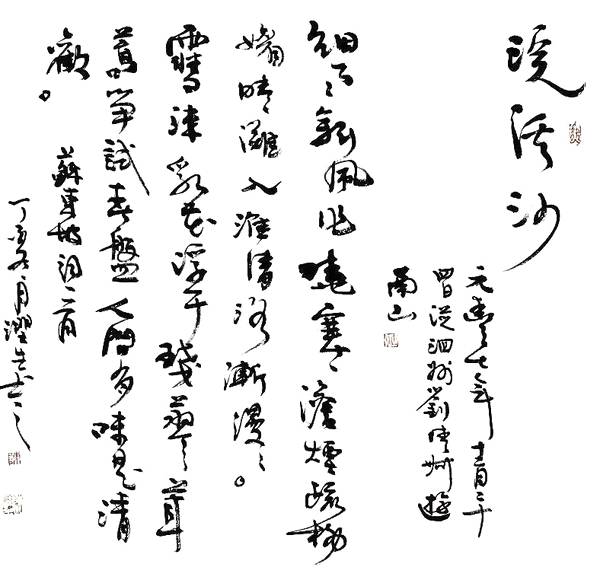 浣溪沙
元豐七年十二月二十
四日從泗州劉倩叔遊
南山
細雨斜風作曉寒澹煙疏柳
媚晴灘入淮清洛漸漫〻。
雪沫乳花浮午琖蓼茸
蒿筍試春盤人間有味是清
歡。
蘇東坡詞二首
丁亥月書之